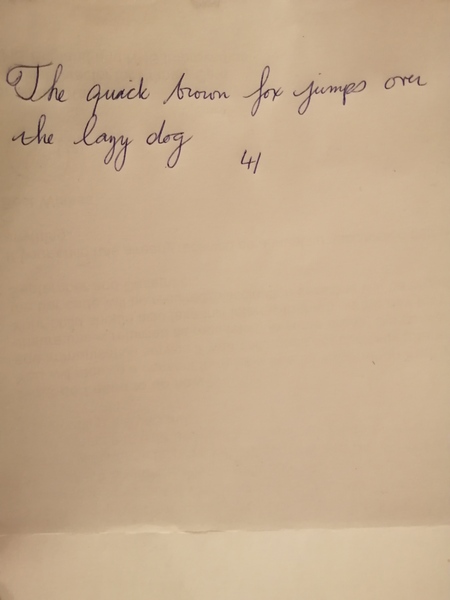 The quick brown fox jumps over
the lazy dog
41